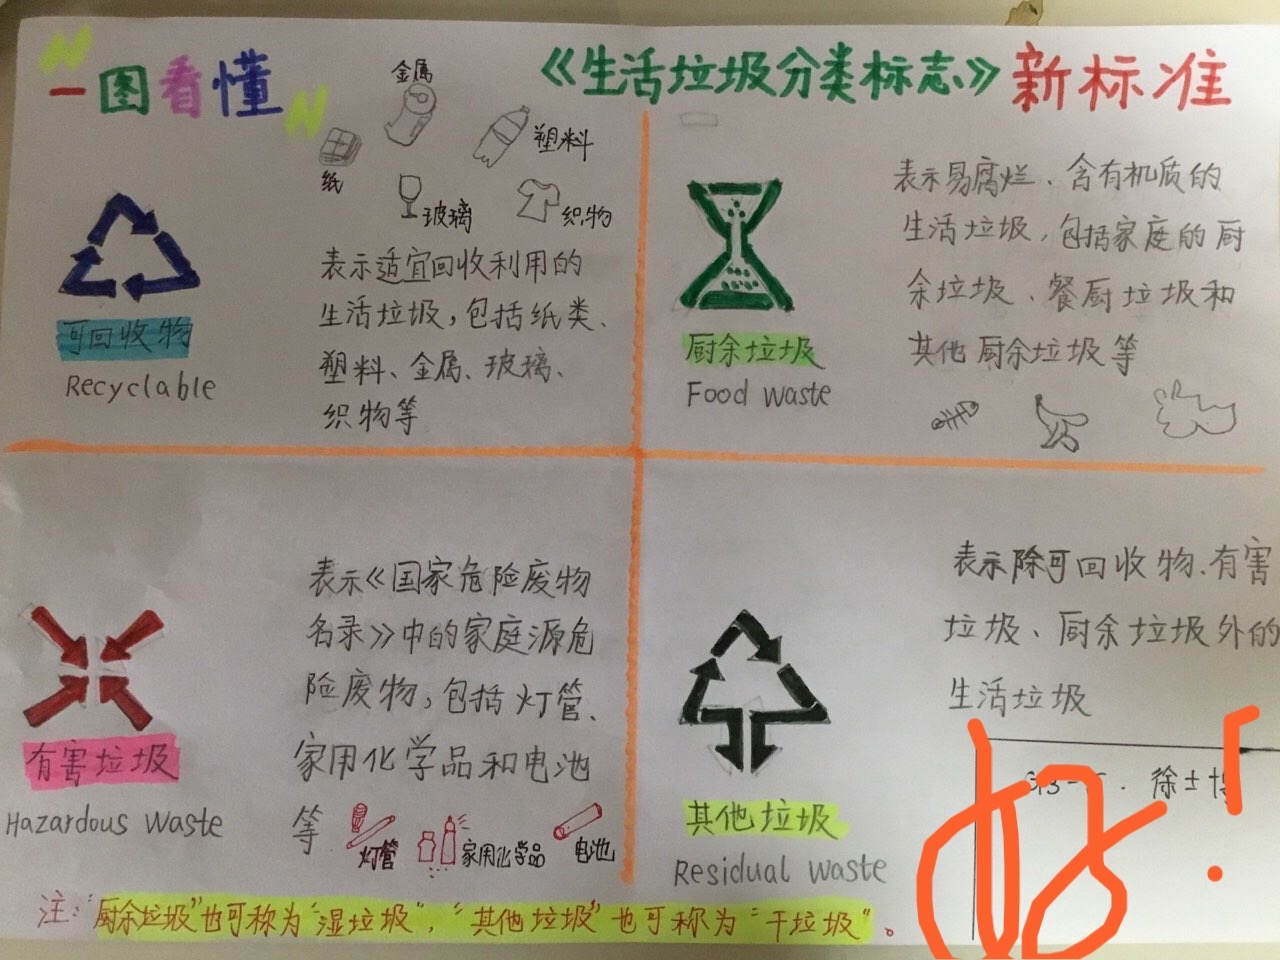 一图看懂
《生活垃圾分类标志》新标准
金属
纸
塑料
玻璃
织物
可回收物
Recyclable
表示适宜回收利用的
生活垃圾,包括纸类、
塑料、金属、玻璃、
织物等
厨余垃圾
Food waste
表示易腐烂、含有机质的
生活垃圾,包括家庭的厨
余垃圾、餐厨垃圾和
其他厨余垃圾等
有害垃圾
Hazardous waste
表示《国家危险废物
名录》中的家庭源危
险废物,包括灯管、
家用化学品和电池
等
灯管
家用化学品
电池
其他垃圾
Residual waste
表示除可回收物、有害
垃圾、厨余垃圾外的
生活垃圾
徐士
好!
注:“厨余垃圾”也可称为“湿垃圾”,“其他垃圾”也可称为“干垃圾”。